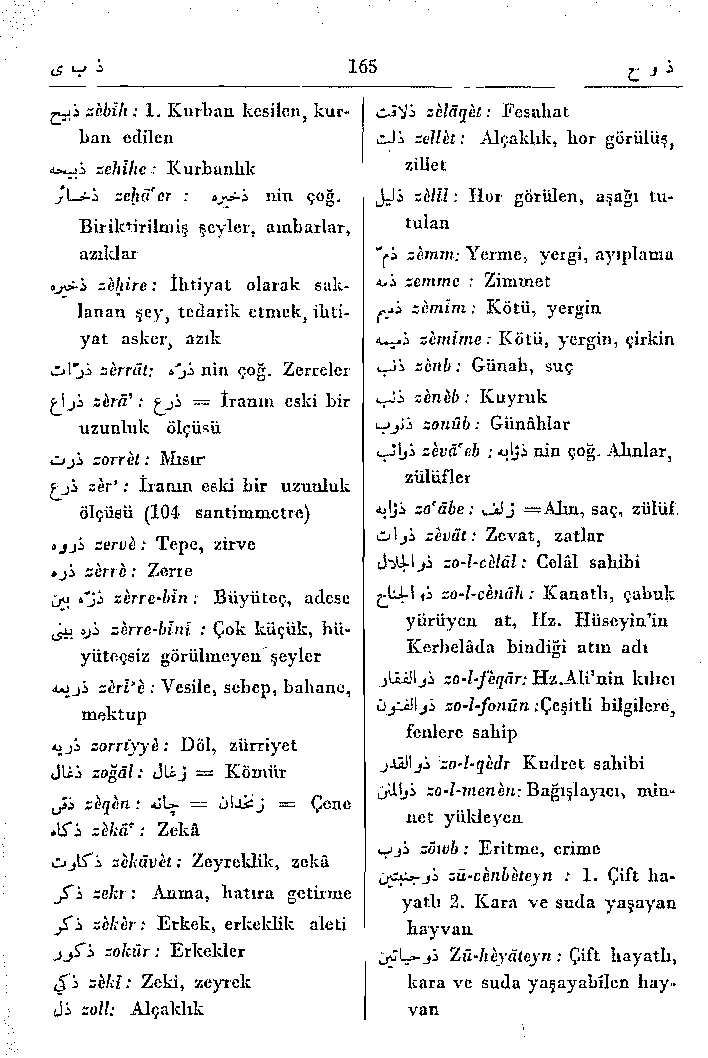 ذ ب ی 165 ذ و ح
ذبیح zèbîh : 1. Kurban kesilen, kur-
ban edilen
ذبیحه zehîhe : Kurbanlık
ذخائر zeḫā'er : ذخیره nin çoğ.
Biriktirilmiş şeyler, ambarlar,
azıklar
ذخیره zèḫîre : İhtiyat olarak sak-
lanan şey, tedarik etmek, ihti-
yat asker, azık
ذرّات zèrrāt: ذرّه nin çoğ. Zerreler
ذراع zèrā' : ذرع = İranın eski bir
uzunluk ölçüsü
ذرت zorrèt : Mısır
ذرع zèr' : İranın eski bir uzunluk
ölçüsü (104 santimmetre)
ذروه zervè : Tepe, zirve
ذره zèrrè : Zerre
ذرّه بین zèrre-bîn : Büyüteç, adese
ذره بینی zèrre-bînî : Çok küçük, bü-
yüteçsiz görülmeyen şeyler
ذریعه zèrî'è : Vesile, sebep, bahane,
mektup
ذریه zorrîyyè : Döl, zürriyet
ذغال zoğāl : زغال = Kömür
ذقن zèqèn : چانه = زنخدان = Çene
ذکاء zèkā' : Zekâ
ذکاوت zèkāvèt : Zeyreklik, zekâ
ذکر zekr : Anma, hatıra getirme
ذکر zèkèr : Erkek, erkeklik aleti
ذکور zokūr : Erkekler
ذکی zèkî : Zeki, zeyrek
ذل zoll: Alçaklık
ذلاقت zèlāqèt : Fesahat
ذلت zellèt : Alçaklık, hor görülüş,
zillet
ذلیل zèlîl : Hor görülen, aşağı tu-
tulan
ذمّ zèmm: Yerme, yergi, ayıplama
ذمه zemme : Zimmet
ذمیم zèmîm : Kötü, yergin
ذمیمه zèmîme : Kötü, yergin, çirkin
ذنب zènb : Günah, suç
ذنب zènèb : Kuyruk
ذنوب zonūb : Günâhlar
ذوائب zèvā'eb : ذؤابه nin çoğ. Alınlar,
zülüfler
ذؤابه zo'ābe : زلف =Alın, saç, zülüf.
ذوات zèvāt : Zevat, zatlar
ذوالجلال zo-l-cèlāl : Celâl sahibi
ذوالجناح zo-l-cènāh : Kanatlı, çabuk
yürüyen at, Hz. Hüseyin'in
Kerbelâda bindiği atın adı
ذوالفقار zo-l-fèqār: Hz.Ali'nin kılıcı
ذوالفنون zo-l-fonūn :Çeşitli bilgilere,
fenlere sahip
ذوالقدر zo-l-qèdr Kudret sahibi
ذوالمنن zo-l-menèn: Bağışlayıcı, min-
net yükleyen
ذوب zōwb : Eritme, erime
ذوجنبتین zū-cènbèteyn : 1. Çift ha-
yatlı 2. Kara ve suda yaşayan
hayvan
ذوحیاتین Zū-hèyāteyn : Çift hayatlı,
kara ve suda yaşayabilen hay-
van